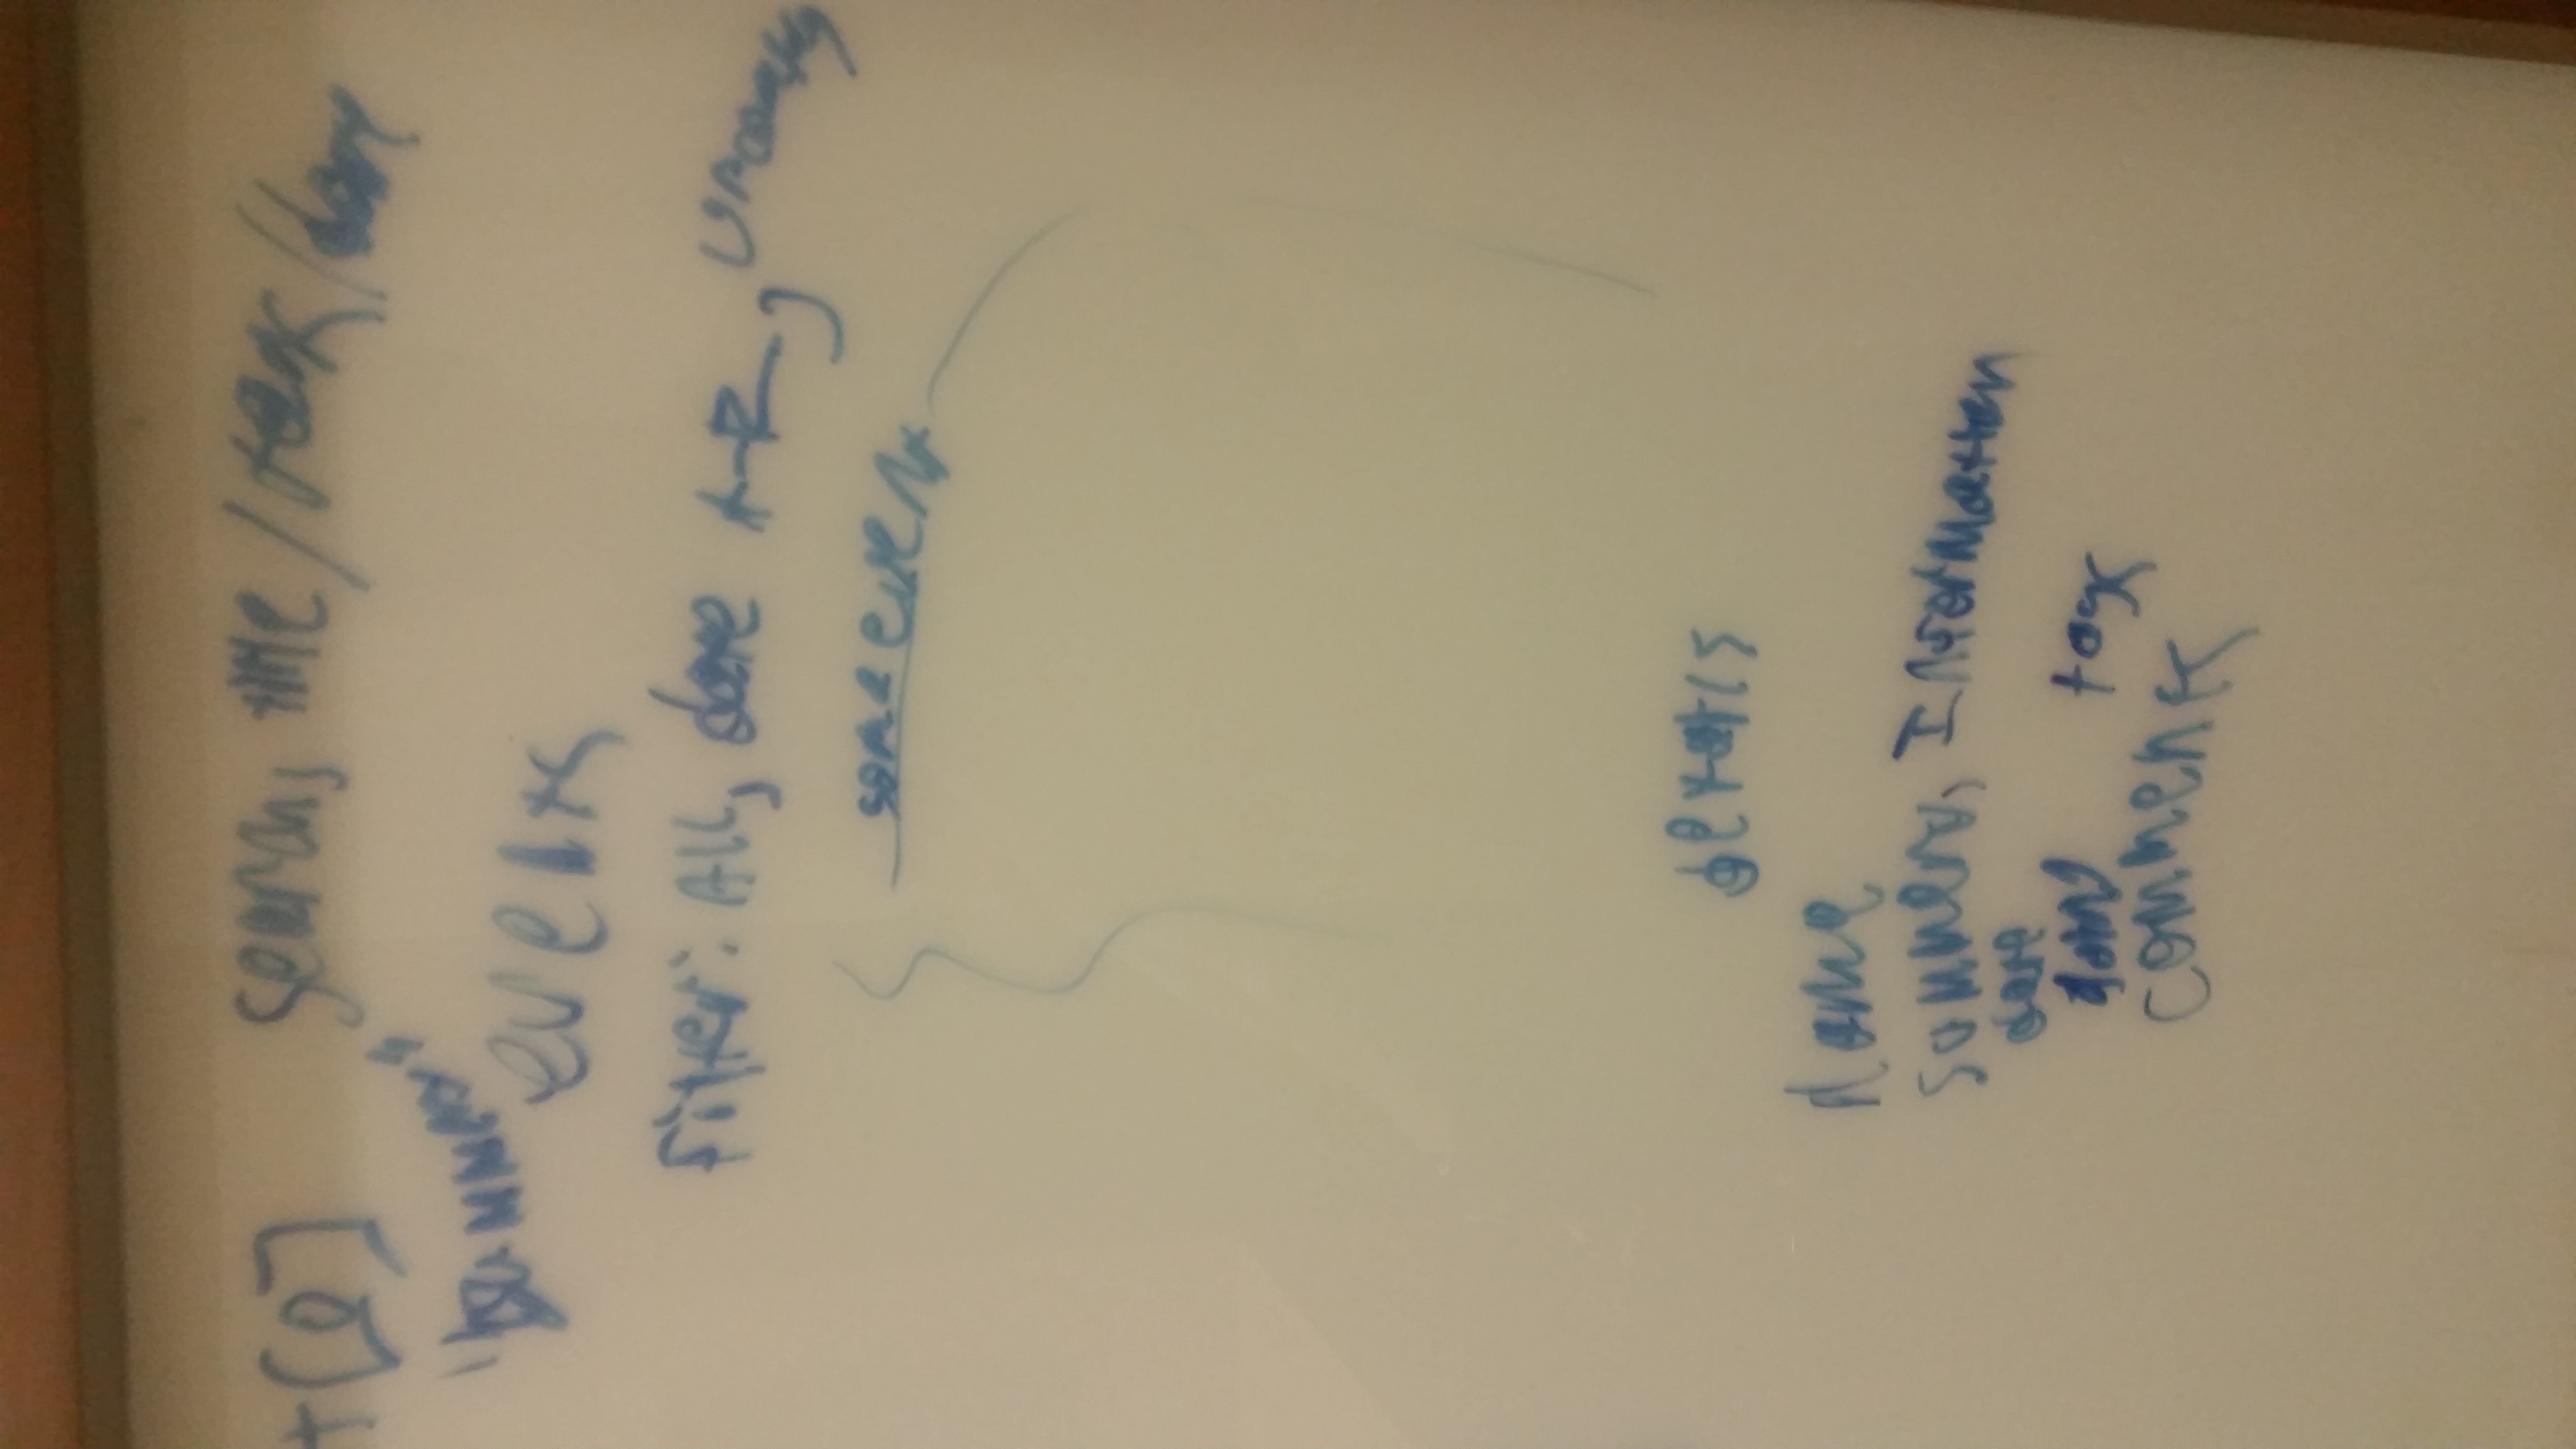 +[0] search, title / tags / date
events
Filter: All, date A-Z, Upcoming
some event
details
Name
Summery, Information
date
going tags
comments